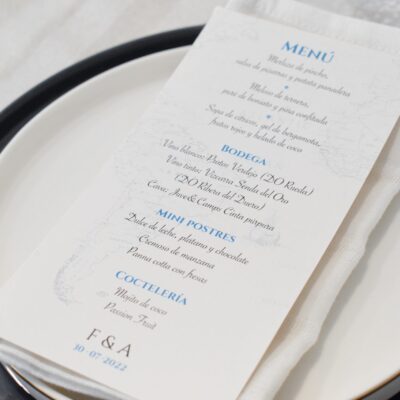 MENÚ
Merluza de pincho,
salsa de ostras y patata panadera
Melosa de ternera,
puré de boniato y piña confitada
Sopa de cítricos, gel de bergamota,
frutos rojos y helado de coco
BODEGA
Vino blanco: Bribón Verdejo (DO Rueda)
Vino tinto: Vizcarra Senda del Oro
(DO Ribera del Duero)
Cava: Juvé&Camps Cinta púrpura
MINI POSTRES
Dulce de leche, plátano y chocolate
Cremoso de manzana
Panna cotta con fresas
COCTELERÍA
Mojito de coco
Passion Fruit
F & A
30·07·2022